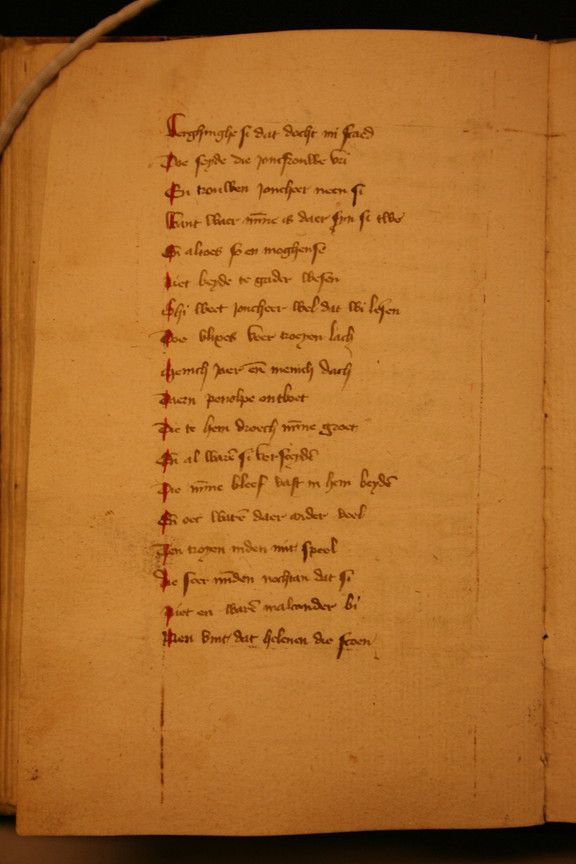 Verghinghe si dat docht mi scaed
Doe seyde die joncfrouwe vri
En trouwen joncheer neen si
Want waer mīne is daer sijn si twe
Eñ altoes so en moghense
Niet beyde te gader wesen
Ghi weet joncheer wel dat wi lesen
Doe vlixes voer troyen lach
Menich jaer eñ menich dach
Daern penolpe ontboet
Die te hem droech mīne groet
Eñ al warē si versceydē
Die mīne bleef vast in hem beydē
Eñ oec warē daer ander veel
Jen troyen inden nijt speel
Die seer mīden nochtan dat si
Niet en warē malcander bi
Men vint dat helenen die scoen